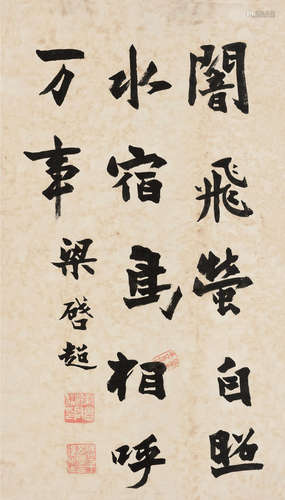 闇飛螢自照
水宿鳥相呼
万事
梁啓超